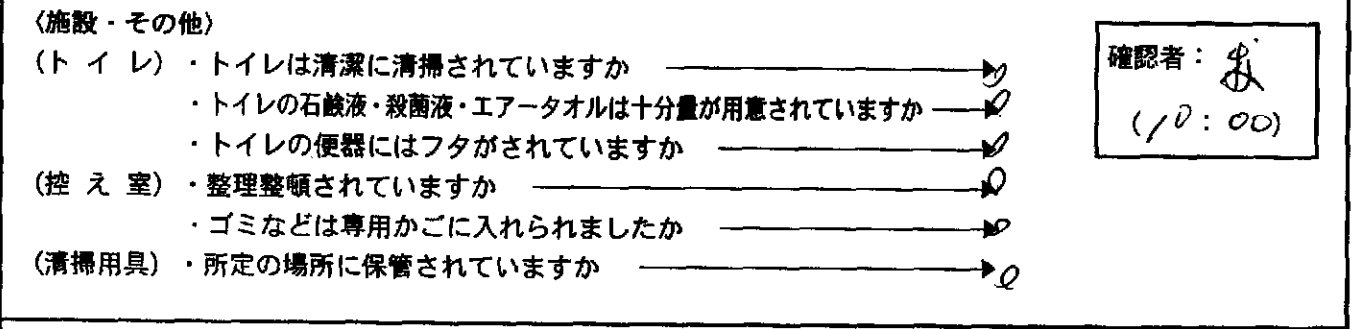 〈施設・その他〉
(ト イ レ) ・トイレは清潔に清掃されていますか
・トイレの石鹸液・殺菌液・エアータオルは十分量が用意されていますか
・トイレの便器にはフタがされていますか
(控 え 室) ・整理整頓されていますか
・ゴミなどは専用かごに入れられましたか
(清掃用具) ・所定の場所に保管されていますか
確認者:
(10:00)